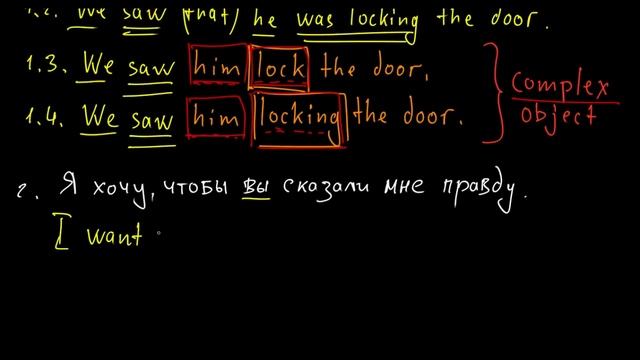 1.2. We saw (that) he was locking the door.
1.3. We saw him lock the door.
1.4. We saw him locking the door.
complex
object
2. Я хочу, чтобы вы сказали мне правду.
I want